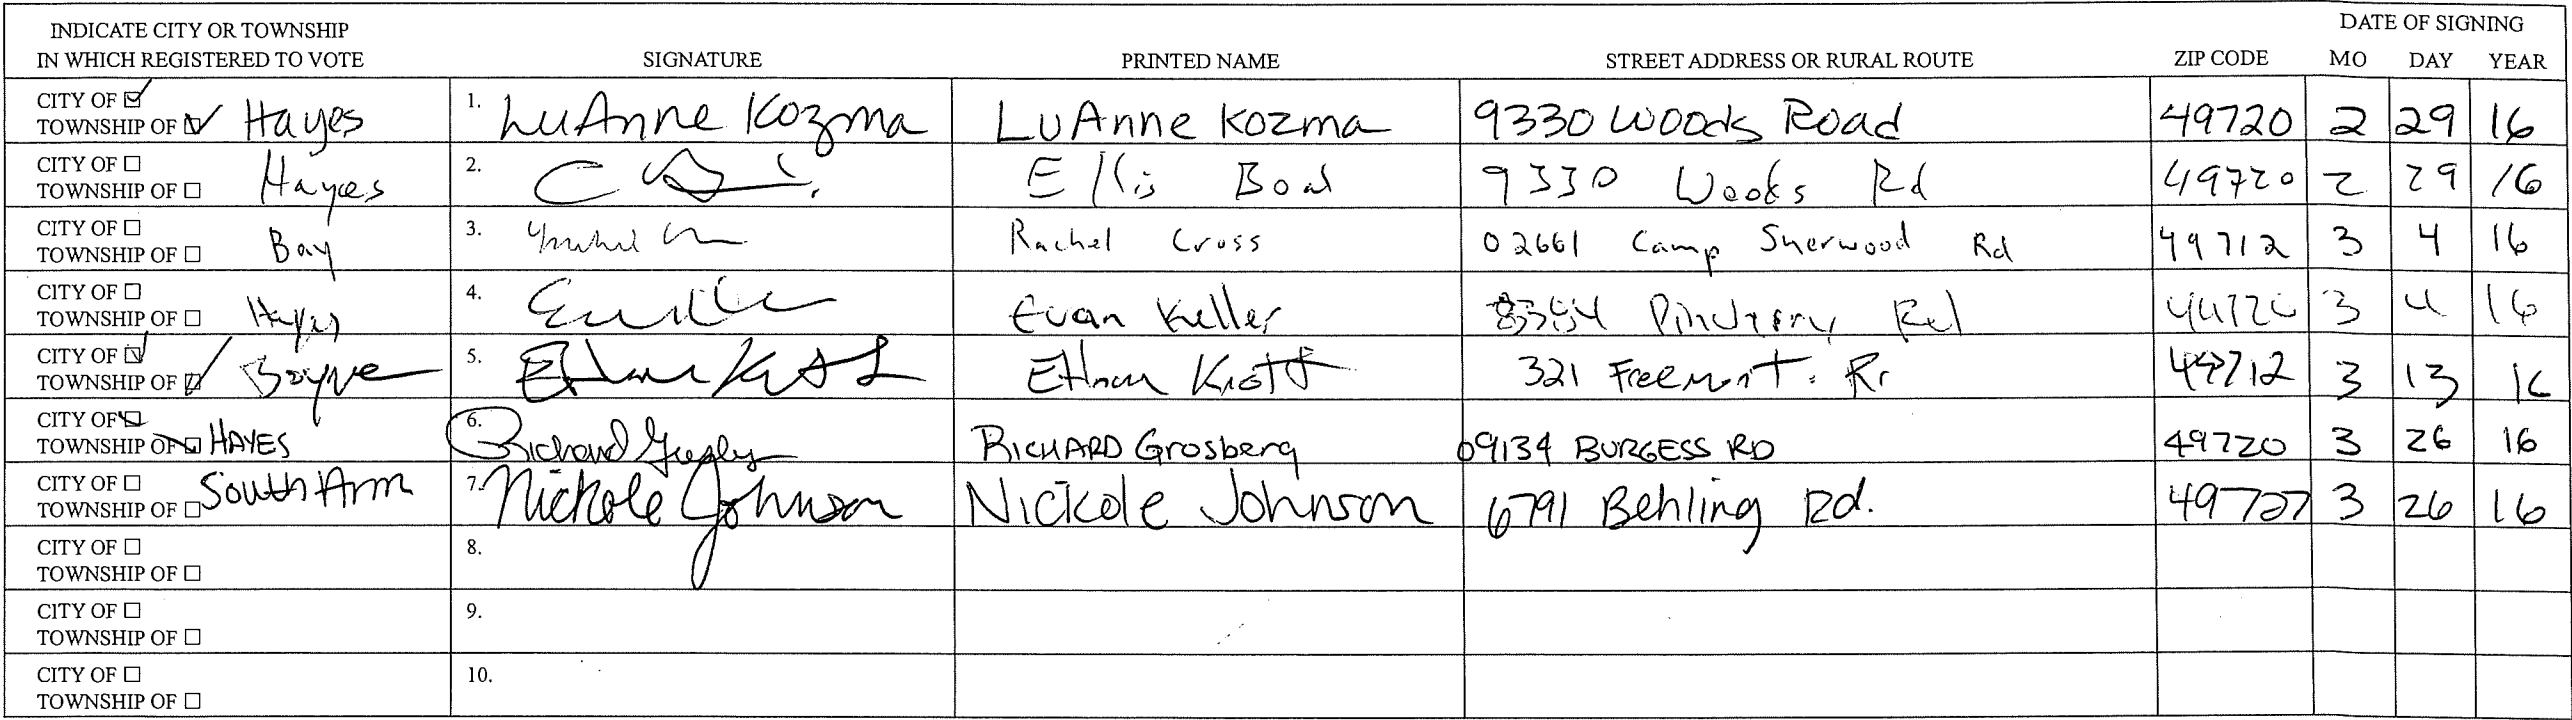 INDICATE CITY OR TOWNSHIP
IN WHICH REGISTERED TO VOTE SIGNATURE PRINTED NAME STREET ADDRESS OR RURAL ROUTE ZIP CODE DATE OF SIGNING
MO DAY YEAR
CITY OF
TOWNSHIP OF Hayes 1. LuAnne Kozma LuAnne Kozma 9330 Woods Road 49720 2 29 16
CITY OF
TOWNSHIP OF Hayes 2. Ellis Boal 9330 Woods Rd 49720 2 29 16
CITY OF
TOWNSHIP OF Bay 3. Rachel Cross 02661 Camp Sherwood Rd 49712 3 4 16
CITY OF
TOWNSHIP OF Hayes 4. Evan Keller Rd 3 4 16
CITY OF
TOWNSHIP OF Boyne 5. Ethan 321 49712 3 13 16
CITY OF
TOWNSHIP OF HAYES 6. Richard RICHARD Grosberg 09134 BURGESS RD 49720 3 26 16
CITY OF
TOWNSHIP OF South Arm 7. Nickole Johnson Nickole Johnson 6791 Behling Rd. 49727 3 26 16
CITY OF
TOWNSHIP OF 8.
CITY OF
TOWNSHIP OF 9.
CITY OF
TOWNSHIP OF 10.